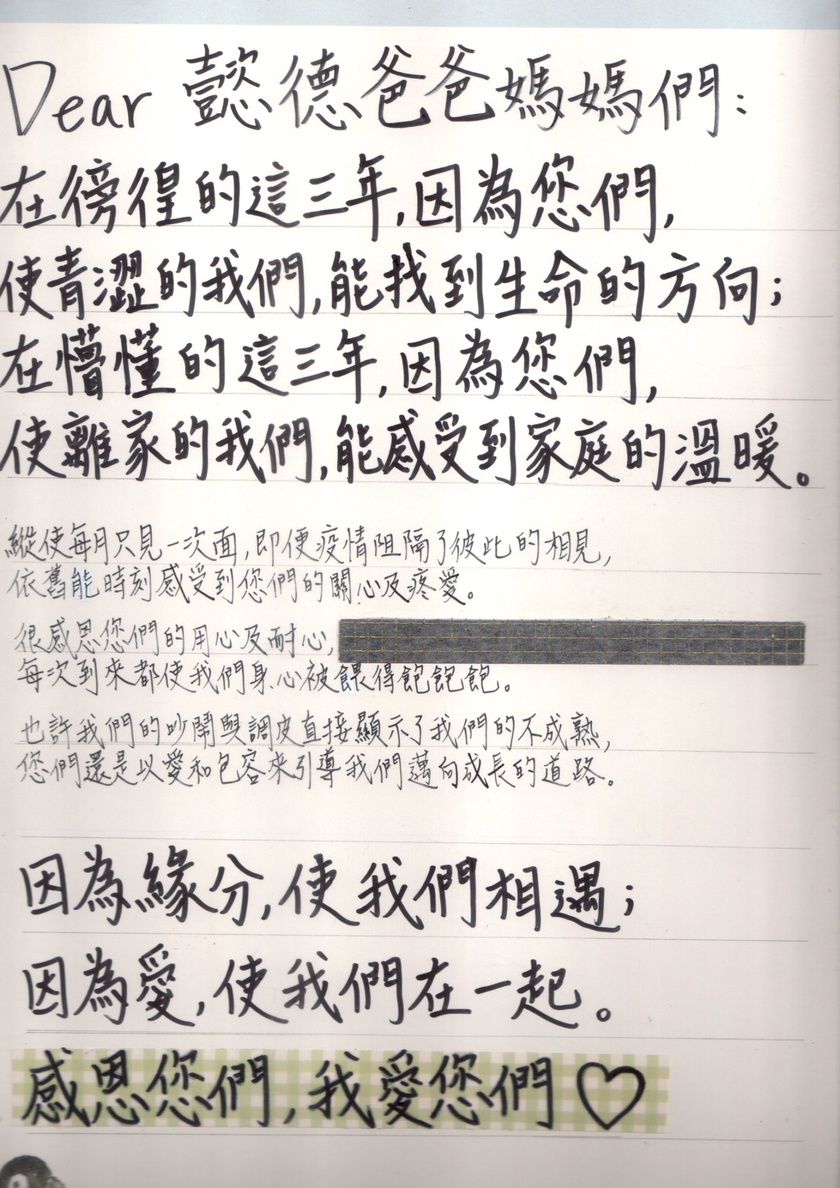 Dear 懿德爸爸媽媽們：
在徬徨的這三年，因為您們，
使青澀的我們，能找到生命的方向；
在懵懂的這三年，因為您們，
使離家的我們，能感受到家庭的溫暖。
縱使每月只見一次面，即便疫情阻隔了彼此的相見，
依舊能時刻感受到您們的關心及疼愛。
很感恩您們的用心及耐心，
每次到來都使我們身心被餵得飽飽飽。
也許我們的吵鬧與調皮直接顯示了我們的不成熟，
您們還是以愛和包容來引導我們邁向成長的道路。
因為緣分，使我們相遇；
因為愛，使我們在一起。
感恩您們，我愛您們♡